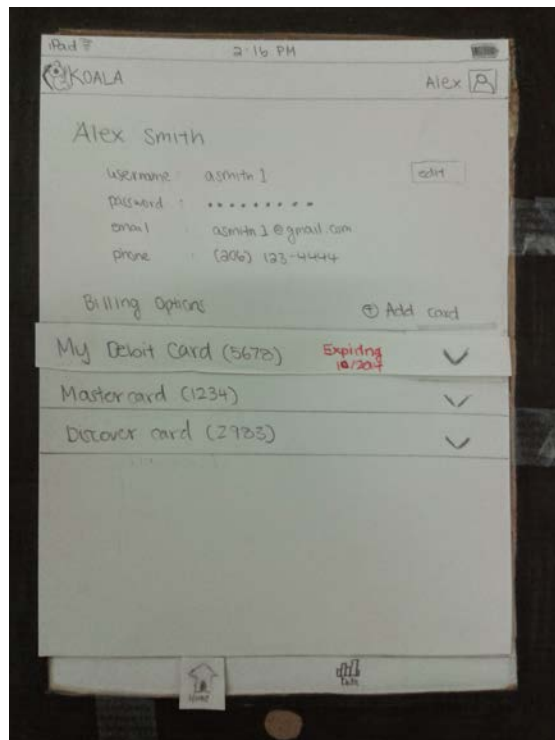 iPad 2:16 PM
KOALA Alex
Alex Smith
username: asmith1 edit
password:
email asmith1@gmail.com
phone : (206) 123-4444
Billing Options + Add card
My Debit Card (5678) Expiring
10/2017
Mastercard (1234)
Discover card (2983)
Home